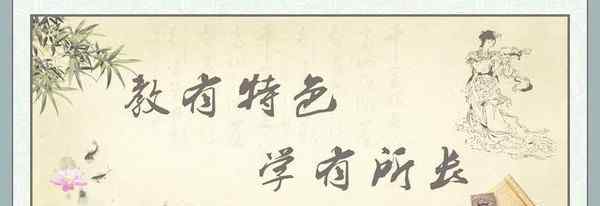 教有特色
学有所长